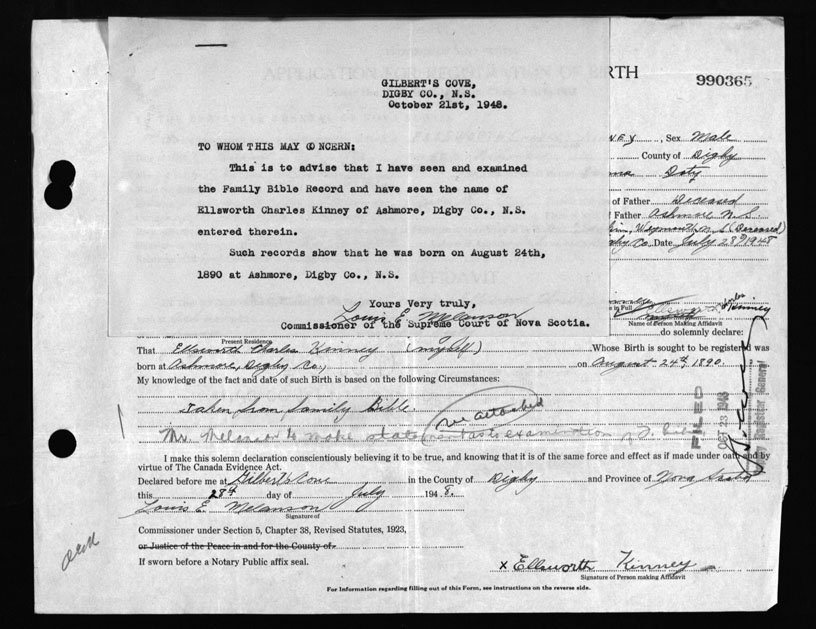 GILBERT'S COVE,
DIGBY CO., N.S.
October 21st, 1948.
RTH
990365
TO WHOM THIS MAY CONCERN:
This is to advise that I have seen and examined
the Family Bible Record and have seen the name of
Ellsworth Charles Kinney of Ashmore, Digby Co., N.S.
entered therein.
Such records show that he was born on August 24th,
1890 at Ashmore, Digby Co., N.S.
Yours Very truly,
Louis E. Melanson
Commissioner of the Supreme Court of Nova Scotia.
NEY, Sex Male
County of Digby
Doty
of Father Deceased
Father Ashmore N.S.
Weymouth N.S. (Deceased)
Co. Date July 28th 1948
in Full Kinney
Name of Person Making Affidavit
do solemnly declare:
Present Residence
That Ellsworth Charles Kinney (myself) Whose Birth is sought to be registered was
born at Ashmore, Digby Co., on August 24th, 1890.
My knowledge of the fact and date of such Birth is based on the following Circumstances:
Taken from family Bible.
see attached
Mr. Melanson to make statement as to examination of F. Bible
FILED
OCT 23 1948
Registrar General
I make this solemn declaration conscientiously believing it to be true, and knowing that it is of the same force and effect as if made under oath and by
virtue of The Canada Evidence Act.
Declared before me at Gilbert's Cove in the County of Digby and Province of Nova Scotia
this 28th day of July 1948.
Louis E. Melanson
Signature of
Commissioner under Section 5, Chapter 38, Revised Statutes, 1923,
or Justice of the Peace in and for the County of
If sworn before a Notary Public affix seal.
x Ellsworth Kinney
Signature of Person making Affidavit
For information regarding filling out of this Form, see instructions on the reverse side.